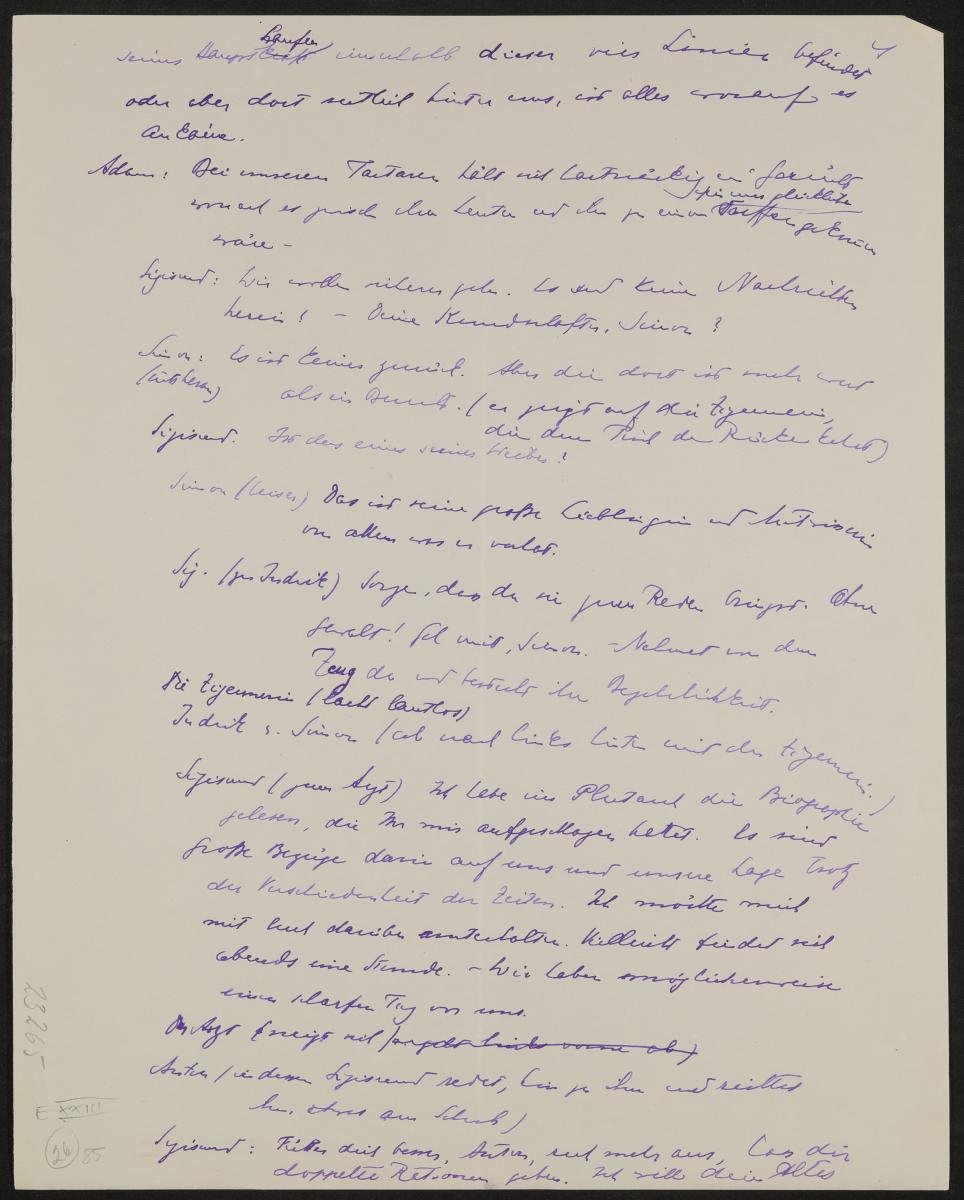 4
Haufen
seines Hauptkraft innerhalb dieser vier Linien befindet
oder aber dort seitlich hinter uns, ist alles worauf es
ankäme.
Adam: Bei unseren Tartaren hält sich hartnäckig ein Gerücht
für uns glücklichen
wonach es zwischen ihren Leuten und ihm zu einem Treffen gekommen
wäre –
Sigismund: Wir wollen sicherer gehn. Es sind keine Nachrichten
herein! – Deine Kundschafter, Simon?
Simon: Es ist keiner zurück. Aber die dort ist mehr wert
als ein Bericht. (er zeigt auf die Zigeunerin,
die dem Tisch den Rücken kehrt)
Sigismund. Ist das eines seiner Weiber!
Simon (leiser) Das ist seine große Lieblingin und Mitwisserin
von allem was er vorhat.
Sig. (zu Indrik) Sorge, dass du sie zum Reden bringst. Ohne
Gewalt! Geh mit, Simon. – Nehmet von dem
Zeug da und bestecht ihre Begehrlichkeit.
Die Zigeunerin (lacht lautlos)
Indrik u. Simon (ab nach links hinten mit der Zigeunerin.)
Sigismund (zum Arzt) Ich habe im Plutarch die Biographie
gelesen, die Ihr mir aufgeschlagen hattet. Es sind
große Bezüge darin auf uns und unsere Lage trotz
der Verschiedenheit der Zeiten. Ich möchte mich
mit Euch darüber unterhalten. Vielleicht findet sich
abends eine Stunde. – Wir haben möglicherweise
einen scharfen Tag vor uns.
Der Arzt (neigt sich) geht links vorne ab)
Anton (indessen Sigismund redet, hin zu ihm und richtet
ihm etwas am Schuh)
Sigismund: Fütter dich besser, Anton, ruh mehr aus, lass dir
doppelte Rationen geben. Ich will dein Altes
23265
E XXIII
26
85